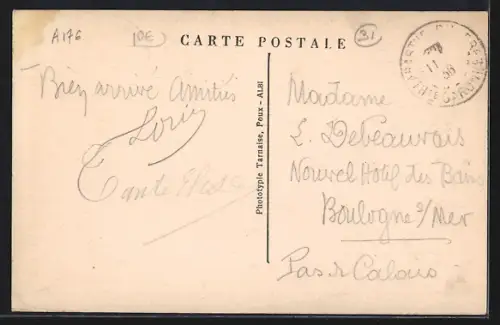 A176
DE
31
CARTE POSTALE
Bien arrivé Amitiés
Tante
Phototypie Tarnaise, Poux - ALBI
Madame
L. Debeauvais
Nouvel Hôtel des Bains
Boulogne s/Mer
Pas de Calais